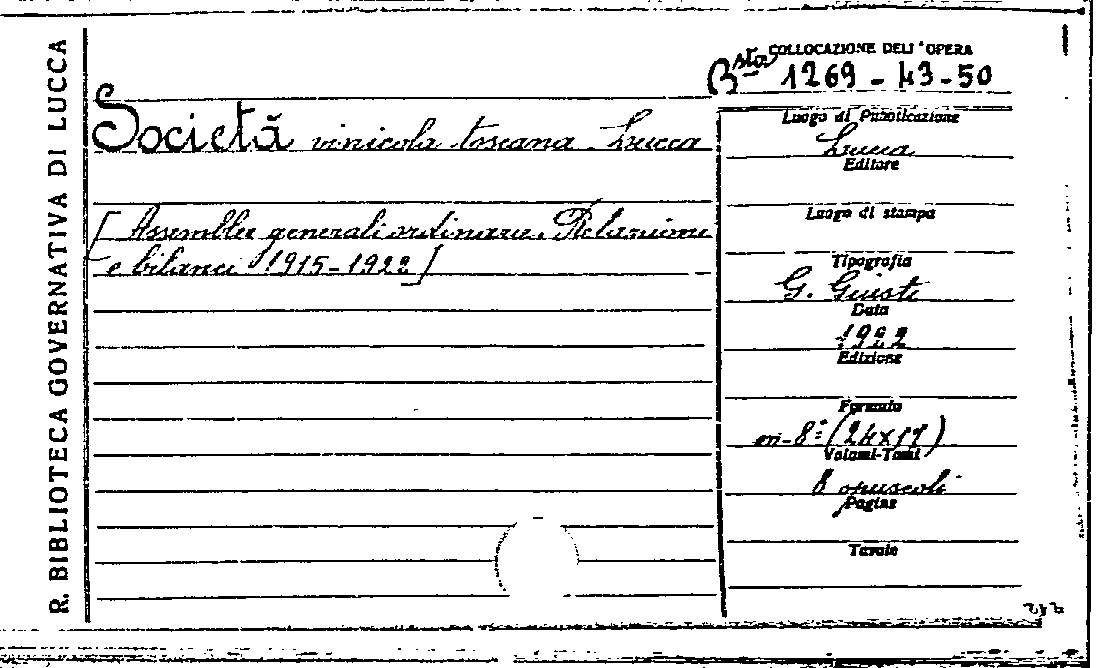 R. BIBLIOTECA GOVERNATIVA DI LUCCA
COLLOCAZIONE DELL'OPERA
Bsta 1269-43-50
Società vinicola toscana Lucca
[Assemblee generali ordinarie. Relazione
e bilanci 1915-1922]
Luogo di Pubblicazione
Lucca
Editore
Luogo di stampa
Tipografia
G. Giusti
Data
1922
Edizione
Formato
in-8° (24x17)
Volumi-Tomi
8 opuscoli
Pagine
Tavole